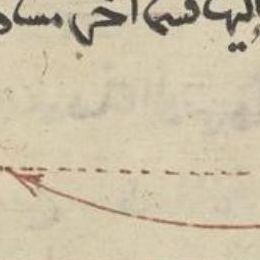 إليها قسم آخر مساو